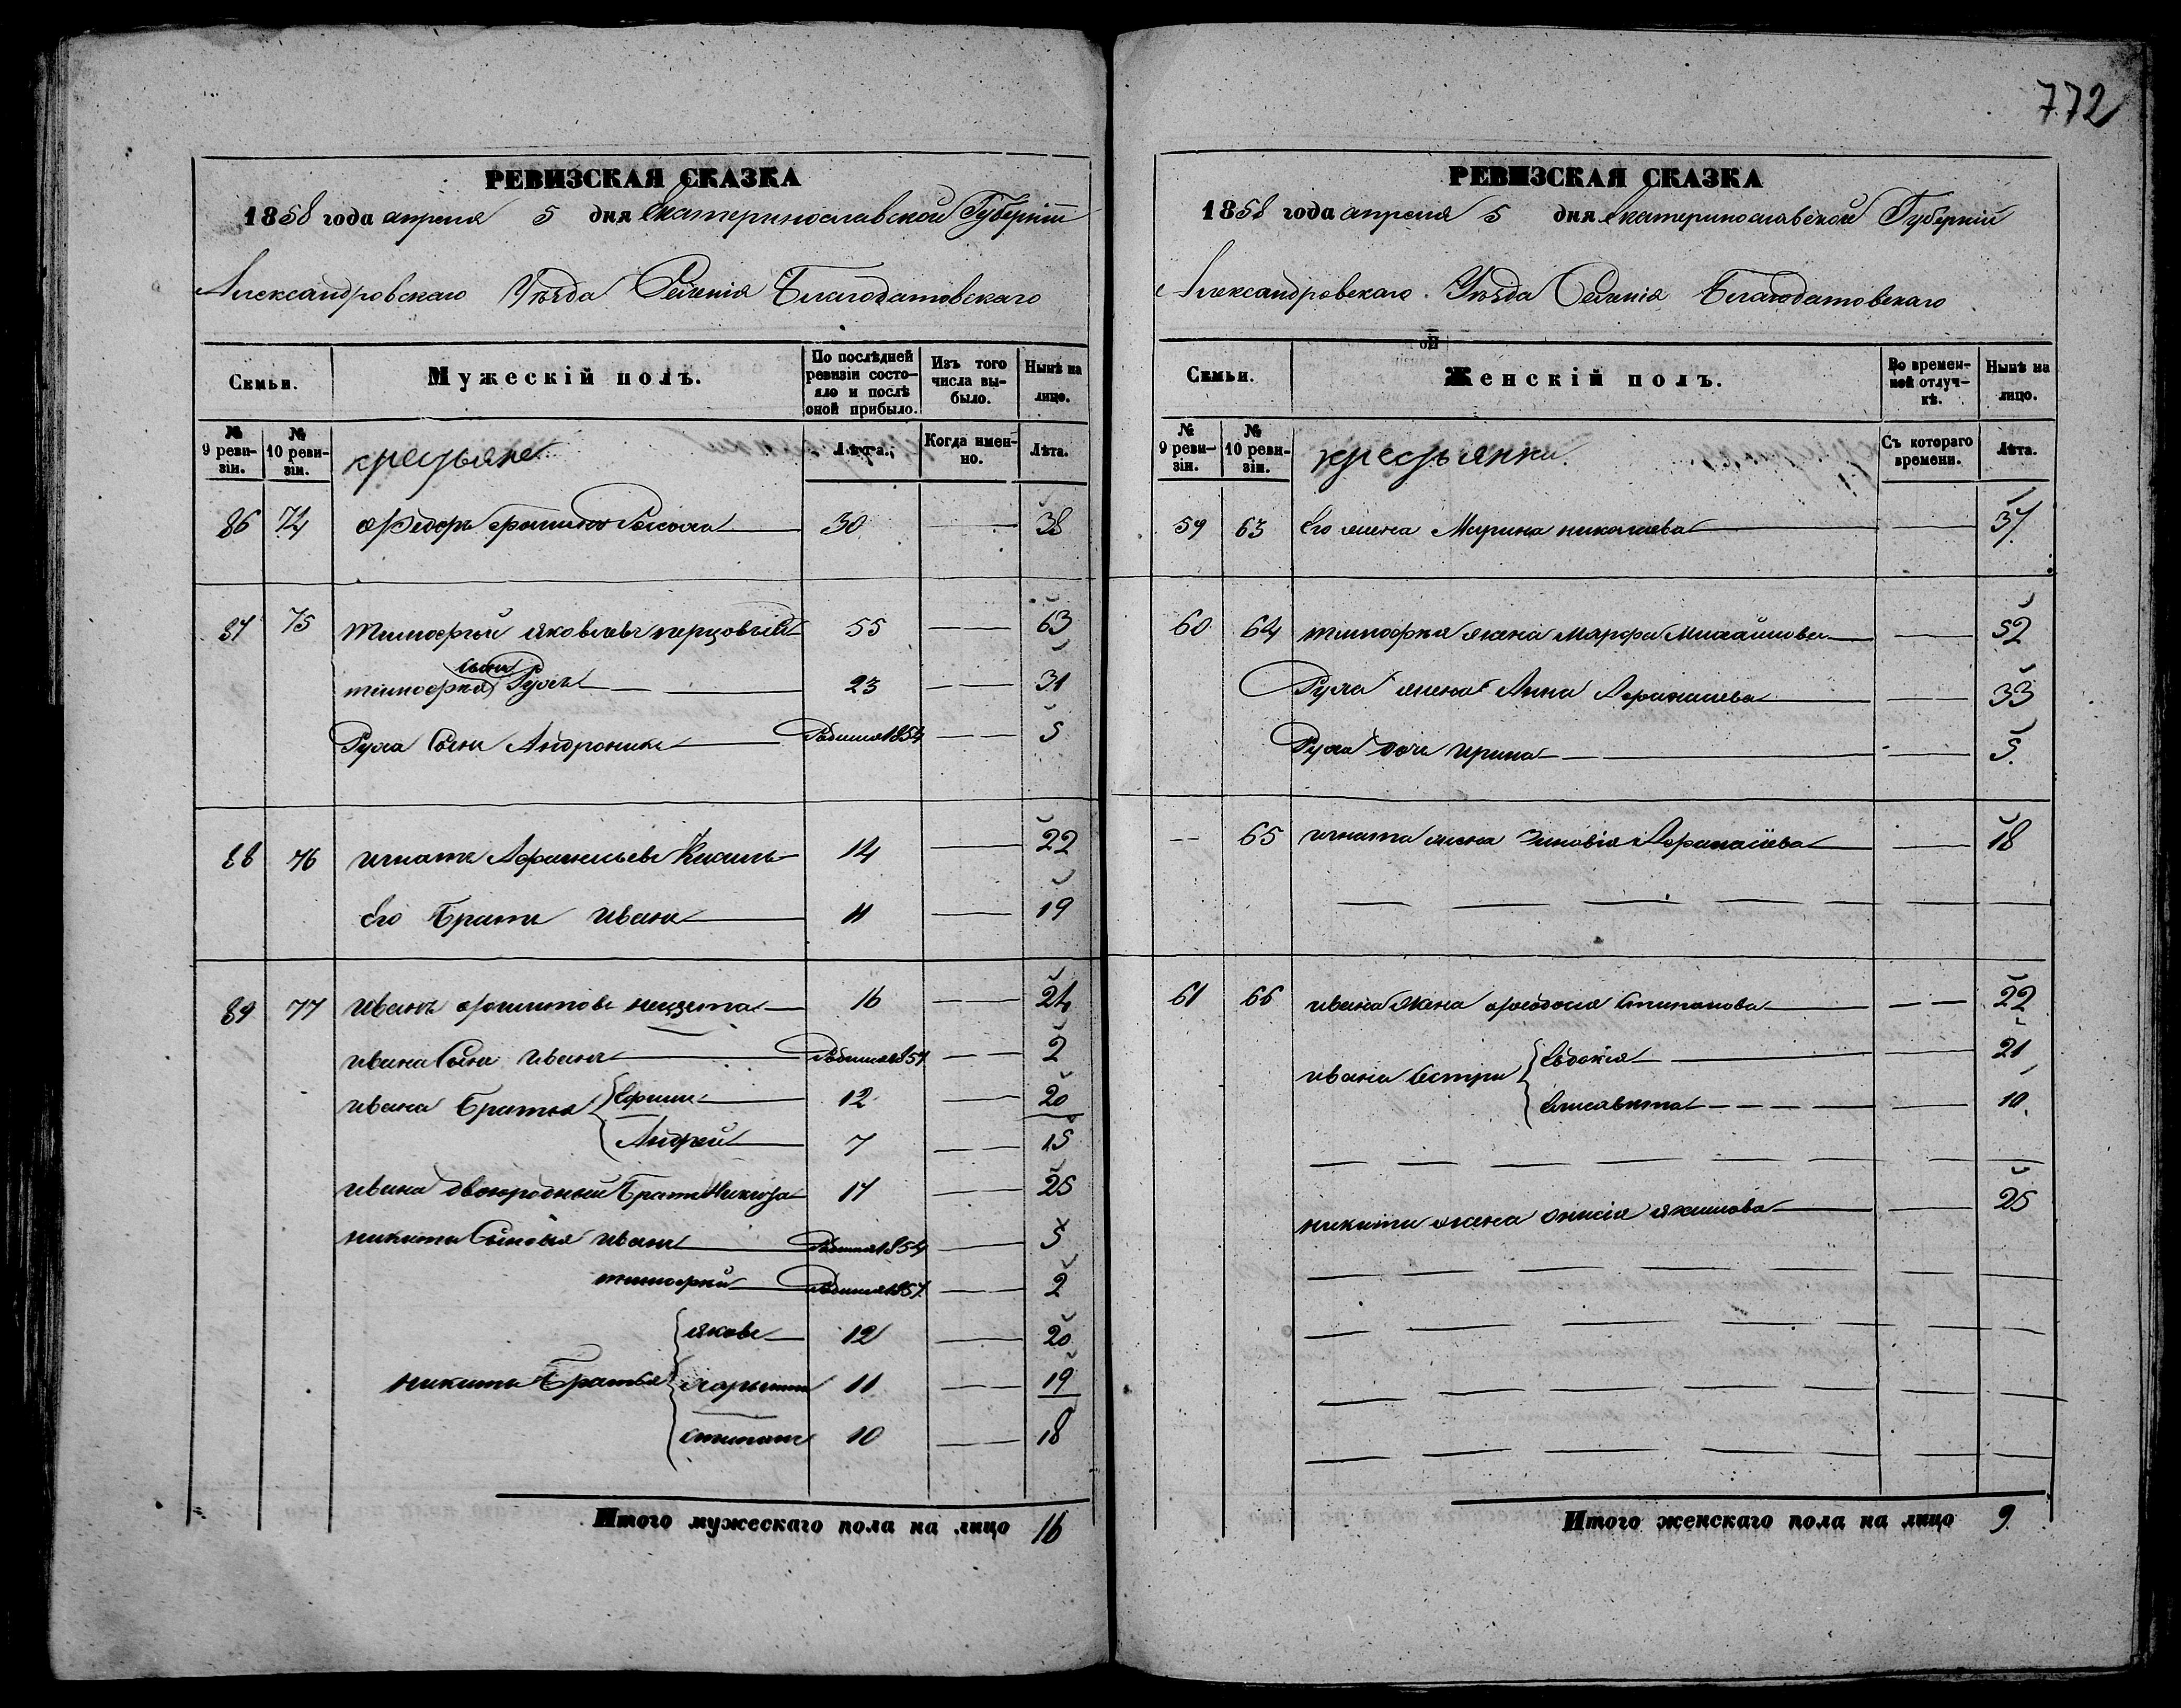 772
РЕВИЗСКАЯ СКАЗКА
1858 года апреля 5 дня Екатеринославской Губерніи
Александровскаго Уѣзда Селенія Благодатовскаго
Семьи.
Мужескій полъ.
По послѣдней ревизіи состояло и послѣ оной прибыло.
Изъ того числа выбыло.
Нынѣ на лицо.
№ 9 ревизіи.
№ 10 ревизіи.
крестьяне
Лѣта.
Когда именно.
Лѣта.
86 74 Федоръ 30 — 38
87 75 тимофѣй яковлевъ перцовый 55 — 63
тимофѣя сынъ Гулъ 23 — 31
Гула Сынъ Андроникъ Родился 1854 — 5
88 76 игнатъ Афанасьевъ Кикиль 14 — 22
его Братъ иванъ 11 — 19
89 77 иванъ нещета 16 — 24
ивана Сынъ иванъ Родился 1857 — 2
ивана Братья Ефимъ 12 — 20
Андрей 7 — 15
ивана двоюродный Братъ Никита 17 — 25
никиты Сыновья иванъ Родился 1854 — 5
тимофѣй Родился 1857 — 2
яковъ 12 — 20
никиты Братья 11 — 19
степанъ 10 — 18
Итого мужескаго пола на лицо 16
РЕВИЗСКАЯ СКАЗКА
1858 года апреля 5 дня Екатеринославской Губерніи
Александровскаго Уѣзда Селенія Благодатовскаго
Семьи.
Женскій полъ.
Во временной отлучкѣ.
Нынѣ на лицо.
№ 9 ревизіи.
№ 10 ревизіи.
крестьянки.
Съ котораго времени.
Лѣта.
59 63 Его жена Марина николаева — 37
60 64 тимофѣя жена Марфа Михайлова — 52
Гула жена Анна Афанасиева — 33
Гула дочь ирина — 5
— 65 игната жена Зиновія Афанасіева — 18
61 66 ивана жена феодосія Степанова — 22
ивана Сестры Евдокія — 21
Елисавета — 10
никиты жена Онисія якимова — 25
Итого женскаго пола на лицо 9